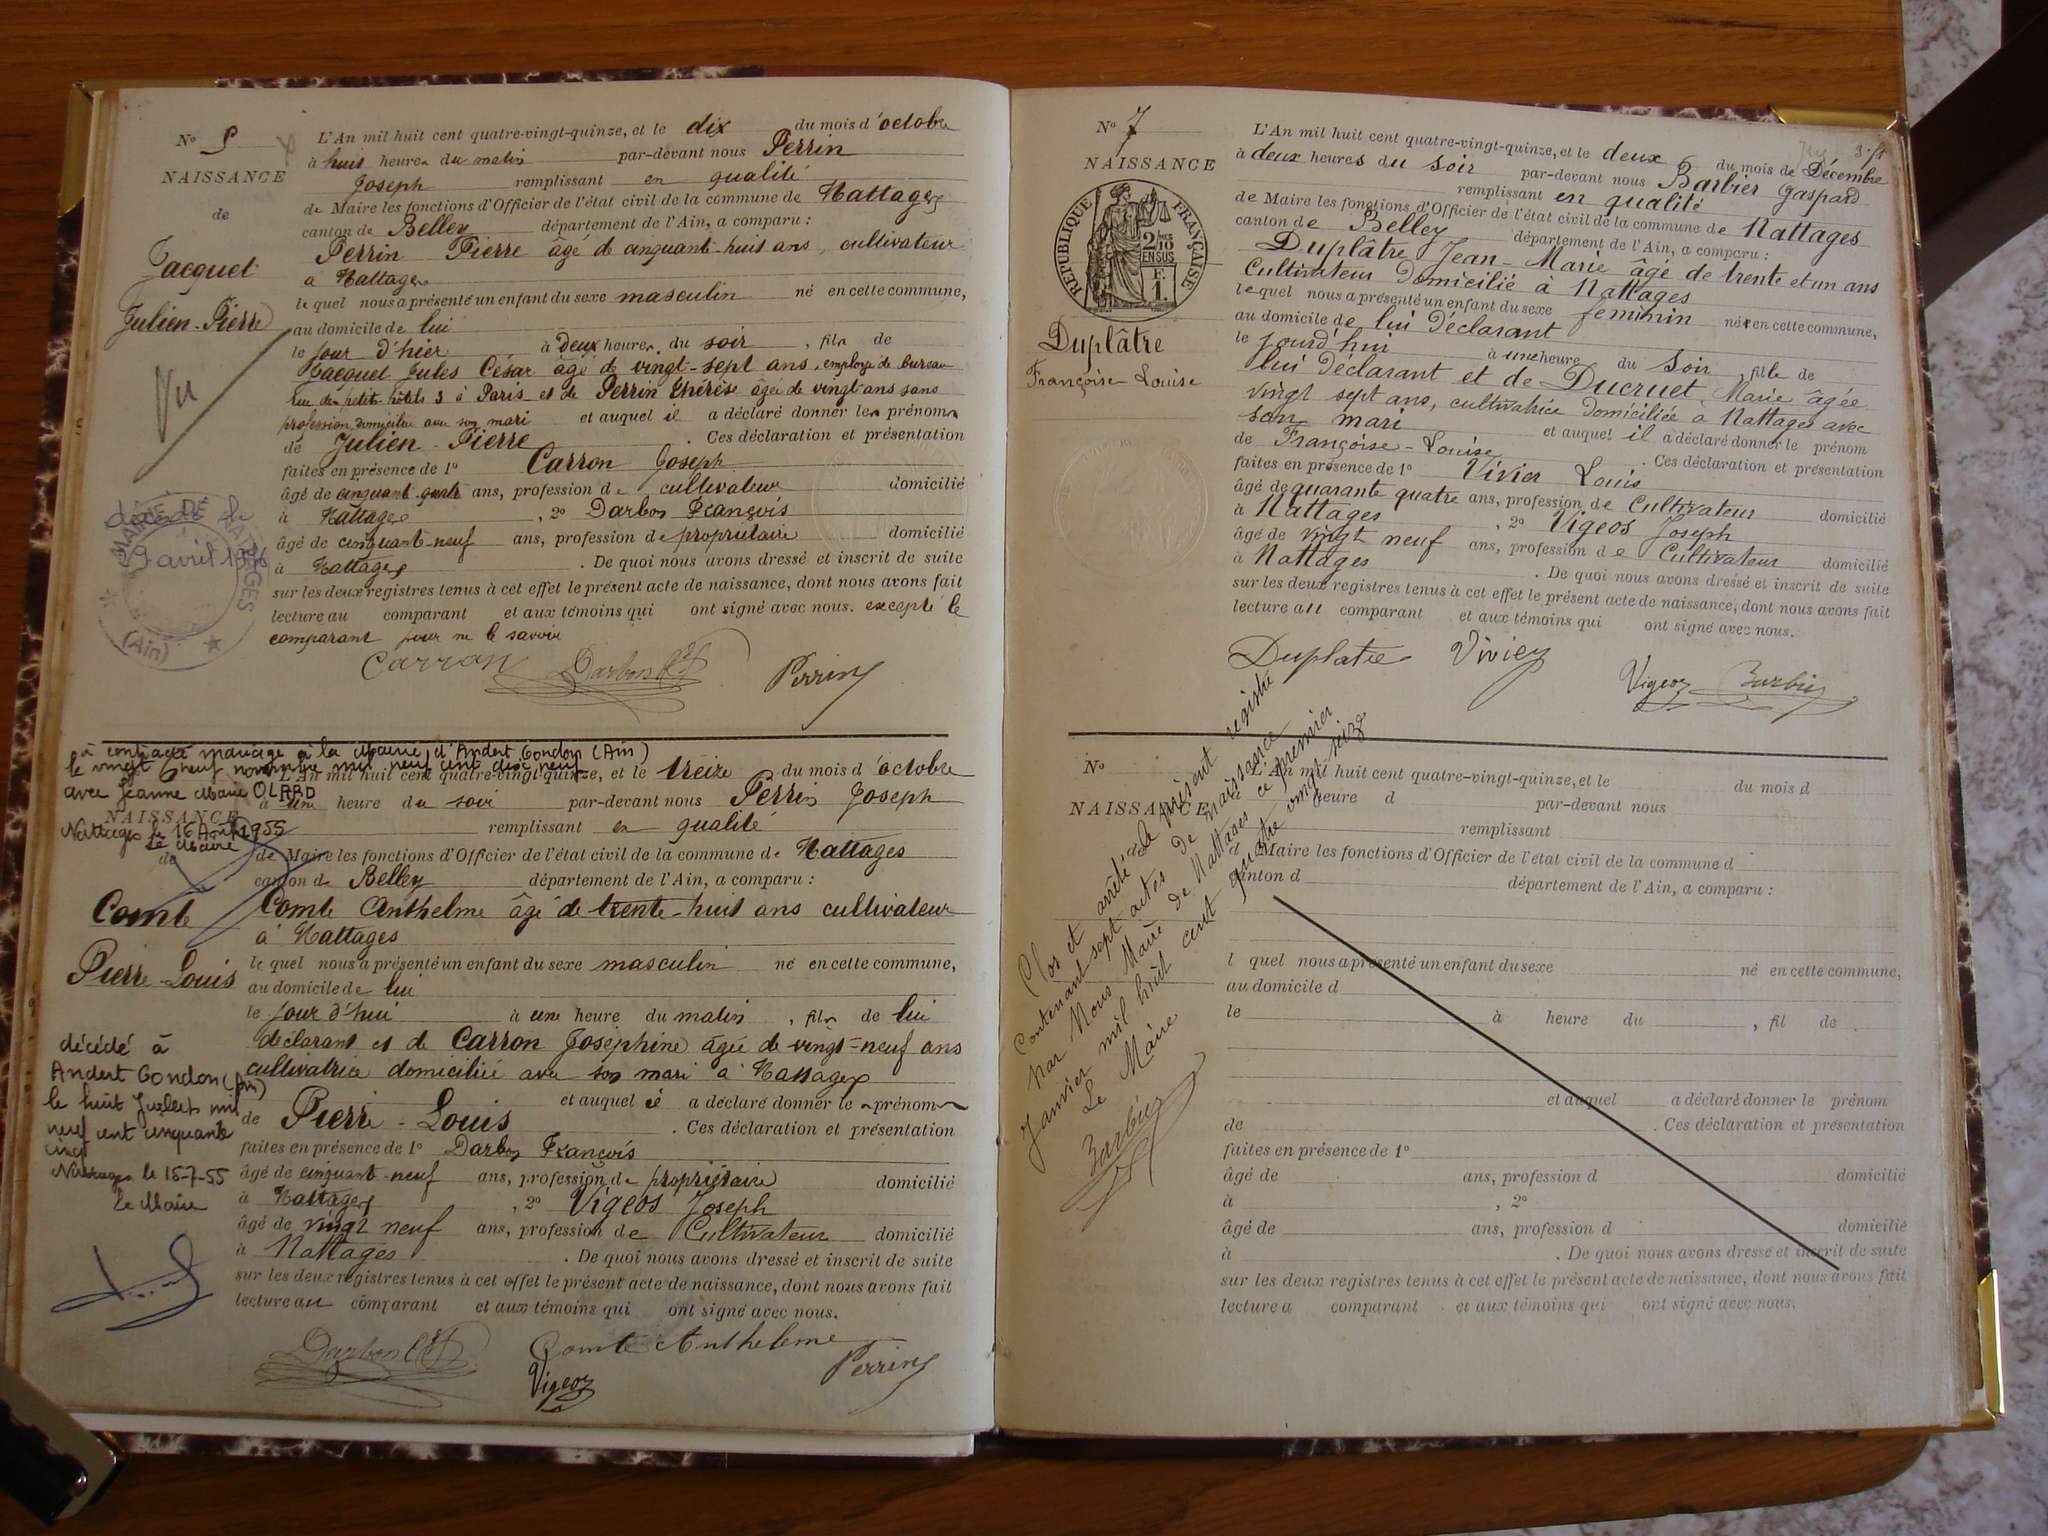 No 5
NAISSANCE
de
Jacquet
Julien-Pierre
Vu
décédé le
9 avril
MAIRIE DE NATTAGES
(Ain)
L'An mil huit cent quatre-vingt-quinze, et le dix du mois d'octobre
à huit heures du matin par-devant nous Perrin
Joseph remplissant en qualité
de Maire les fonctions d'Officier de l'état civil de la commune de Nattages
canton de Belley département de l'Ain, a comparu :
Perrin Pierre âgé de cinquant-huit ans, cultivateur
à Nattages
lequel nous a présenté un enfant du sexe masculin né en cette commune,
au domicile de lui
le jour d'hier à deux heures du soir, fils de
Jacquet Jules César âgé de vingt-sept ans, employé de bureau
rue des petits hôtels 3 à Paris et de Perrin Thérèse âgée de vingt ans sans
profession domiciliée avec son mari et auquel il a déclaré donner les prénoms
de Julien-Pierre. Ces déclaration et présentation
faites en présence de 1° Carron Joseph
âgé de cinquant-quatre ans, profession de cultivateur domicilié
à Nattages, 2° Darbon François
âgé de cinquant-neuf ans, profession de propriétaire domicilié
à Nattages. De quoi nous avons dressé et inscrit de suite
sur les deux registres tenus à cet effet le présent acte de naissance, dont nous avons fait
lecture au comparant et aux témoins qui ont signé avec nous. excepté le
comparant pour ne le savoir
Carron Darbon Perrin
à contracté mariage à la Mairie d'Andert Condon (Ain)
le vingt neuf novembre mil neuf cent dix neuf
avec Jeanne Marie OLARD
Nattages le 16 Août 1955
Le Maire
NAISSANCE
de
Comte
Pierre-Louis
décédé à
Andert Condon (Ain)
le huit Juillet mil
neuf cent cinquante
cinq
Nattages le 15-7-55
Le Maire
L'An mil huit cent quatre-vingt-quinze, et le treize du mois d'octobre
à une heure du soir par-devant nous Perrin Joseph
remplissant en qualité
de Maire les fonctions d'Officier de l'état civil de la commune de Nattages
canton de Belley département de l'Ain, a comparu :
Comte Anthelme âgé de trente-huit ans cultivateur
à Nattages
lequel nous a présenté un enfant du sexe masculin né en cette commune,
au domicile de lui
le jour d'hui à une heure du matin, fils de lui
déclarant et de Carron Joséphine âgée de vingt-neuf ans
cultivatrice domiciliée avec son mari à Nattages
et auquel il a déclaré donner les prénoms
de Pierre-Louis. Ces déclaration et présentation
faites en présence de 1° Darbon François
âgé de cinquant-neuf ans, profession de propriétaire domicilié
à Nattages, 2° Vigeos Joseph
âgé de vingt neuf ans, profession de Cultivateur domicilié
à Nattages. De quoi nous avons dressé et inscrit de suite
sur les deux registres tenus à cet effet le présent acte de naissance, dont nous avons fait
lecture au comparant et aux témoins qui ont signé avec nous.
Darbon Comte Anthelme
Vigeoz Perrin
No 7
NAISSANCE
RÉPUBLIQUE FRANÇAISE
2/10
EN SUS
1 F.
Duplâtre
Françoise Louise
L'An mil huit cent quatre-vingt-quinze, et le deux du mois de Décembre
à deux heures du soir par-devant nous Barbier Gaspard
remplissant en qualité
de Maire les fonctions d'Officier de l'état civil de la commune de Nattages
canton de Belley département de l'Ain, a comparu :
Duplâtre Jean-Marie âgé de trente et un ans
Cultivateur domicilié à Nattages
lequel nous a présenté un enfant du sexe feminin née en cette commune,
au domicile de lui déclarant
le jourd'hui à une heure du soir, fille de
lui déclarant et de Ducruet Marie âgée
vingt sept ans, cultivatrice domiciliée à Nattages avec
son mari et auquel il a déclaré donner le prénom
de Françoise-Louise. Ces déclaration et présentation
faites en présence de 1° Vivier Louis
âgé de quarante quatre ans, profession de Cultivateur domicilié
à Nattages, 2° Vigeos Joseph
âgé de vingt neuf ans, profession de Cultivateur domicilié
à Nattages. De quoi nous avons dressé et inscrit de suite
sur les deux registres tenus à cet effet le présent acte de naissance, dont nous avons fait
lecture au comparant et aux témoins qui ont signé avec nous.
Duplatre Vivier
Vigeoz Barbier
Clos et arrêté le présent registre
Contenant sept actes de naissance
par Nous Maire de Nattages ce premier
Janvier mil huit cent quatre vingt seize
Le Maire
Barbier
No
NAISSANCE
L'An mil huit cent quatre-vingt-quinze, et le du mois d
heure d par-devant nous
remplissant
d Maire les fonctions d'Officier de l'état civil de la commune d
canton d département de l'Ain, a comparu :
l quel nous a présenté un enfant du sexe né en cette commune,
au domicile d
le à heure du, fil de
et auquel a déclaré donner le prénom
de. Ces déclaration et présentation
faites en présence de 1°
âgé de ans, profession d domicilié
à, 2°
âgé de ans, profession d domicilié
à. De quoi nous avons dressé et inscrit de suite
sur les deux registres tenus à cet effet le présent acte de naissance, dont nous avons fait
lecture a comparant et aux témoins qui ont signé avec nous.